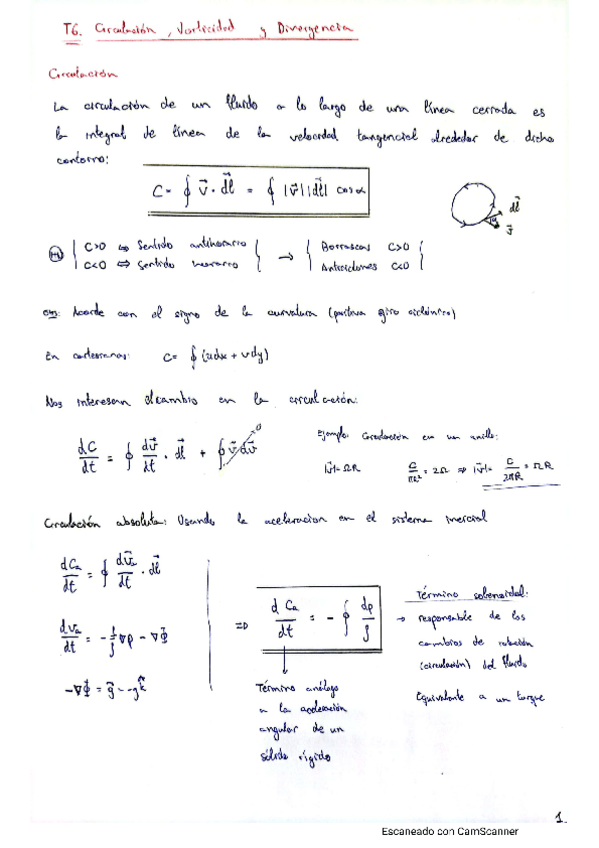 T6. Circulación, Vorticidad y Divergencia
Circulación
La circulación de un fluido a lo largo de una línea cerrada es
la integral de línea de la velocidad tangencial alrededor de dicho
contorno:
C = ∮ v⃗ · dl⃗ = ∮ |v⃗||dl⃗| cos α
dl⃗
α
v⃗
(HN) { C>0 ⇔ Sentido antihorario } → { Borrascas C>0 }
{ C<0 ⇔ Sentido horario } { Anticiclones C<0 }
Acorde con el signo de la curvatura (positiva giro ciclónico)
En cartesianas: C = ∮ (u dx + v dy)
Nos interesan el cambio en la circulación:
dC/dt = ∮ dv⃗/dt · dl⃗ + ∮ v⃗ dv⃗ 0
Ejemplo: Circulación en un anillo:
|v⃗| = ΩR C/πR² = 2Ω ⇒ |v⃗| = C/2πR = ΩR
Circulación absoluta: Usando la aceleracion en el sistema inercial
dCa/dt = ∮ dv⃗a/dt · dl⃗
dva/dt = -1/ρ ∇p - ∇Φ
-∇Φ = g⃗ = -gk⃗
⇒ dCa/dt = - ∮ dp/ρ
Término análogo
a la aceleración
angular de un
sólido rígido
Término solenoidal:
→ responsable de los
cambios de rotación
(circulación) del fluido
Equivalente a un torque
1.
Escaneado con CamScanner